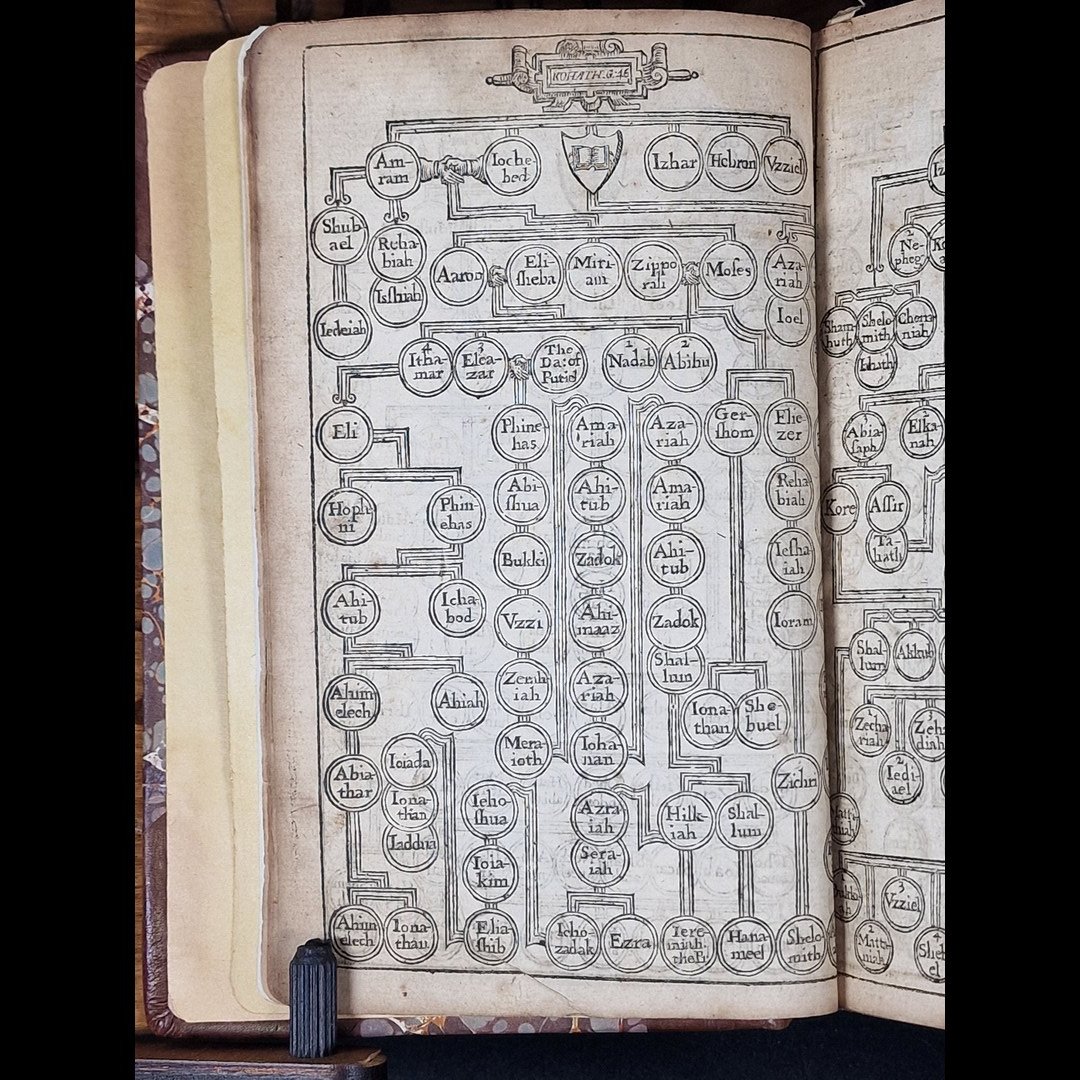 KOHATH. G. 46
Am-
ram
Ioche-
bed
Izhar
Hebron
Vzziel
Shub
ael
Reha-
biah
Isshiah
Iedeiah
Aaron
Eli-
sheba
Miri-
am
Zippo
rah
Moses
Aza-
riah
Ioel
4
Itha-
mar
3
Elea-
zar
The
Da: of
Putiel
1
Nadab
2
Abihu
Eli
Phine
has
Ama-
riah
Aza-
riah
Ger-
shom
Elie-
zer
Hoph
ni
Phin-
ehas
Abi-
shua
Ahi-
tub
Ama-
riah
Reha-
biah
Bukki
Zadok
Ahi-
tub
Iesha-
iah
Ahi-
tub
Icha-
bod
Vzzi
Ahi-
maaz
Zadok
Ioram
Ahim
elech
Ahiah
Zerah
iah
Aza-
riah
Shal-
lum
Iona-
than
She-
buel
Abia-
thar
Ioiada
Mera-
ioth
Ioha-
nan
Zichri
Iona-
than
Iaddua
Ieho-
shua
Azra-
iah
Hilk-
iah
Shal-
lum
Ioia-
kim
Sera-
iah
Ahim
elech
Iona-
than
Elia-
shib
Ieho-
zadak
Ezra
Iere-
miah.
the Pr
Hana-
meel
Shelo-
mith
Iz
2
Ne-
pheg
Sham-
huth
Shelo-
mith
Chena-
niah
Iahath
Abia-
saph
Elka-
nah
Kore
Assir
Ta-
hath
Shal-
lum
Akkub
1
Zecha-
riah
3
Zeb
diah
2
Iedi-
ael
3
Vzziel
2
Matt-
niah
4
Sheb
el